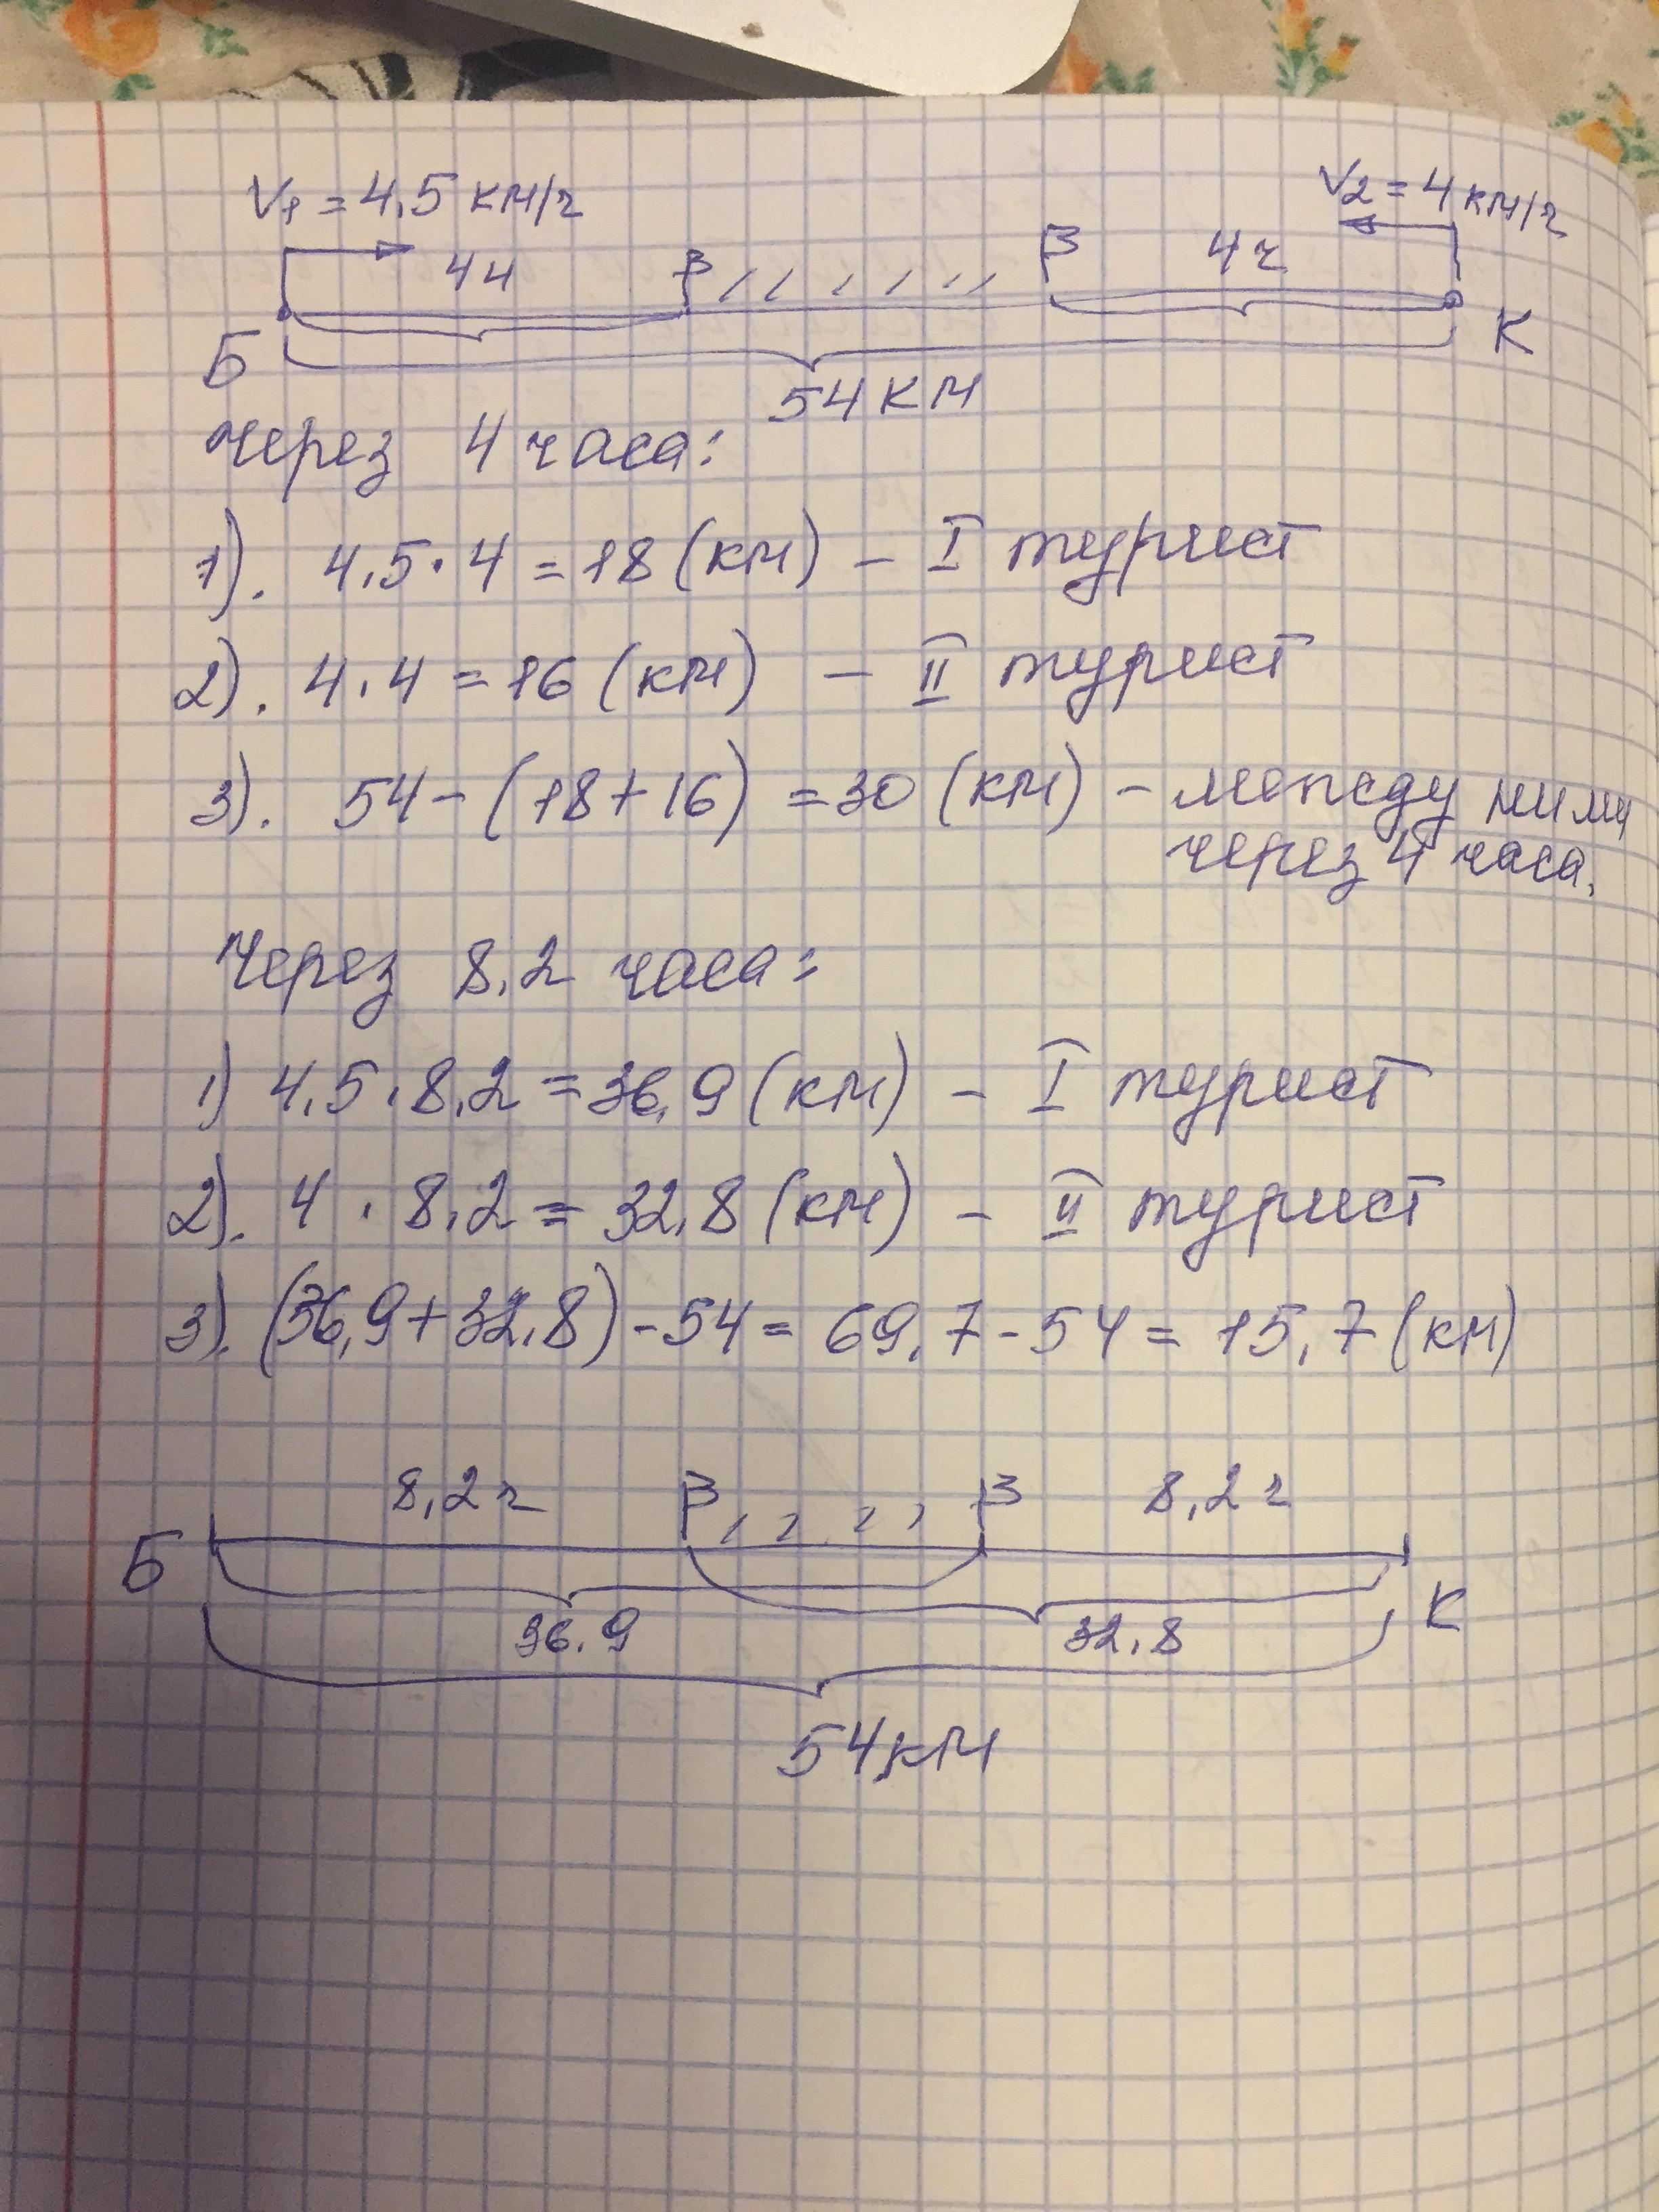 V₁ = 4,5 км/ч
V₂ = 4 км/ч
4ч
4ч
Б
К
54 км
Через 4 часа:
1). 4,5 · 4 = 18 (км) – I турист
2). 4 · 4 = 16 (км) – II турист
3). 54 – (18 + 16) = 30 (км) – между ними
через 4 часа.
Через 8,2 часа:
1) 4,5 · 8,2 = 36,9 (км) – I турист
2). 4 · 8,2 = 32,8 (км) – II турист
3). (36,9 + 32,8) – 54 = 69,7 – 54 = 15,7 (км)
8,2 ч
8,2 ч
Б
К
36,9
32,8
54 км